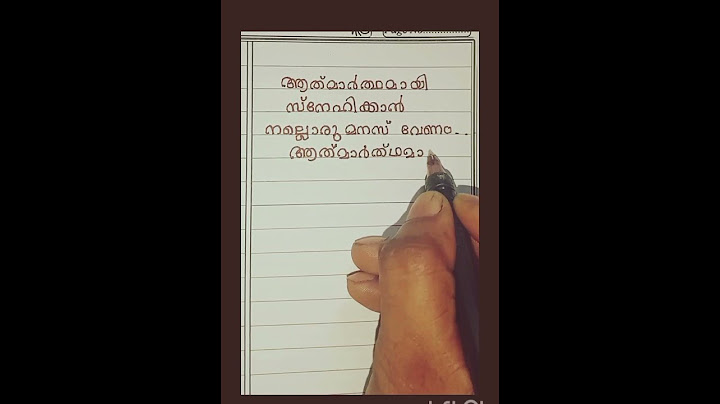 ആത്മാർത്ഥമായി
സ്നേഹിക്കാൻ
നല്ലൊരു മനസ് വേണം..
ആത്മാർത്ഥമാ